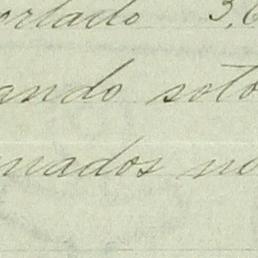 ortado 3,6
ando soto
nados no